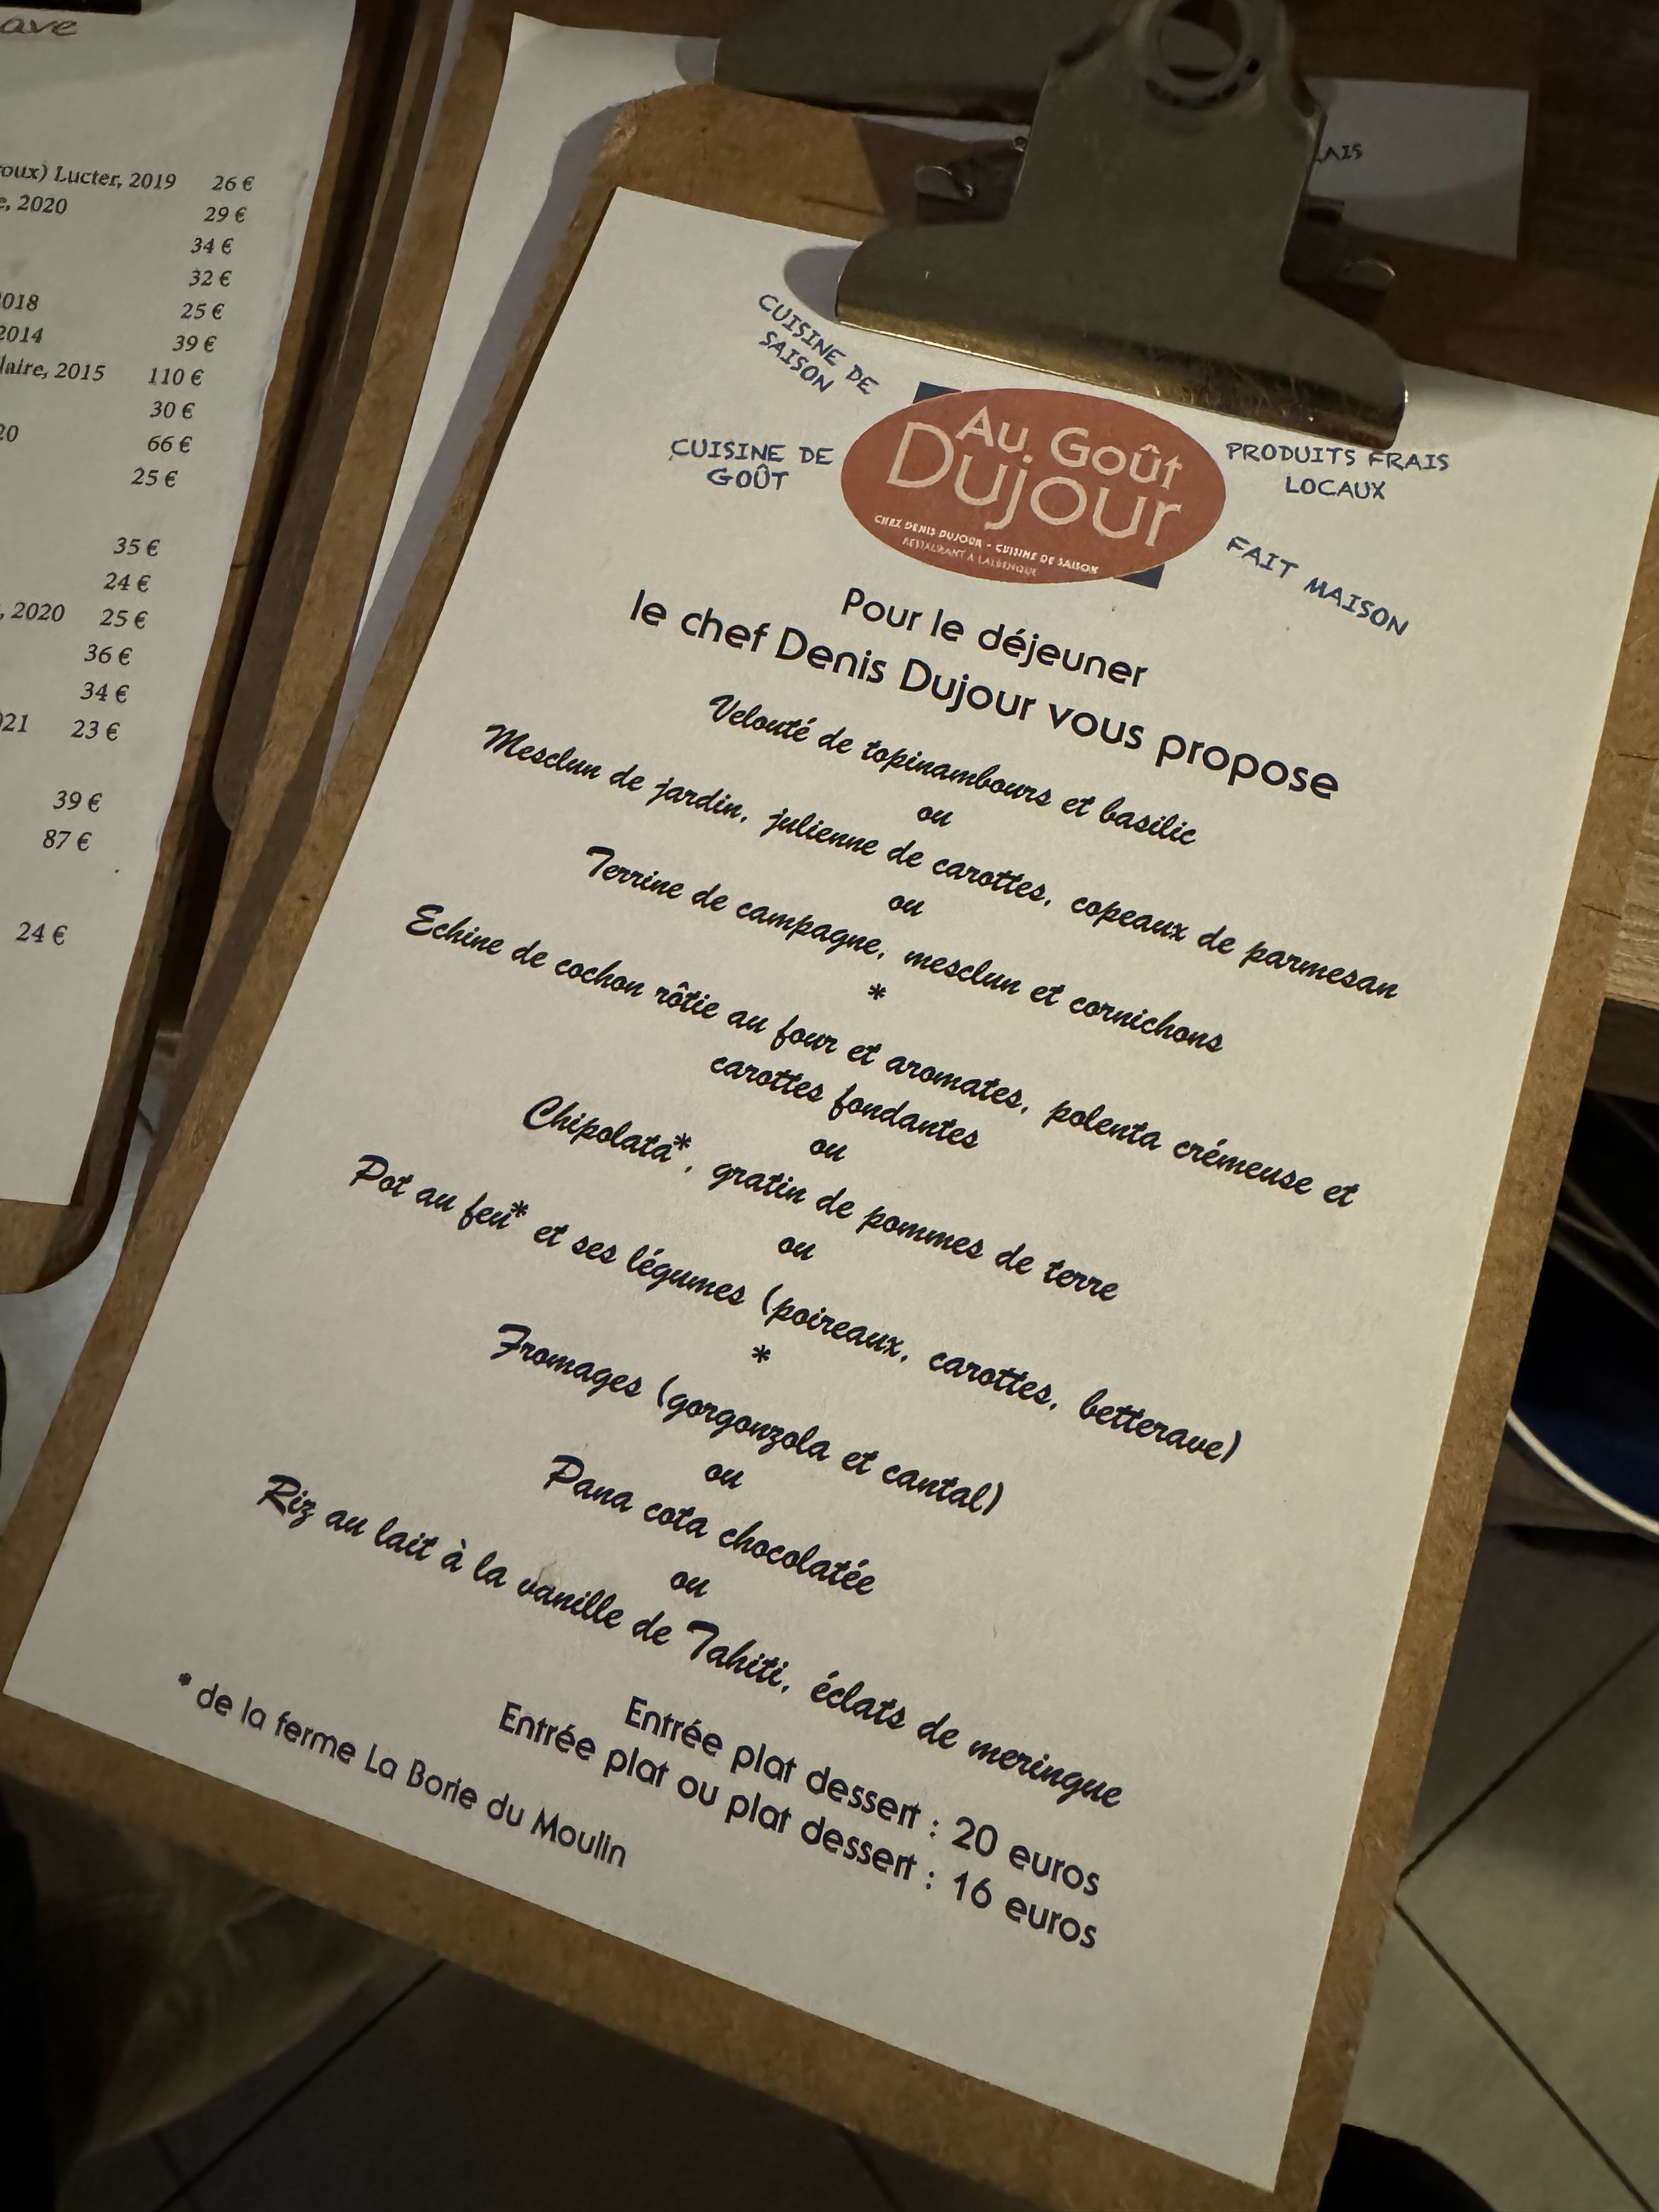 ave
roux) Lucter, 2019 26 €
e, 2020 29 €
34 €
32 €
2018 25 €
2014 39 €
laire, 2015 110 €
30 €
20 66 €
25 €
35 €
24 €
, 2020 25 €
36 €
34 €
021 23 €
39 €
87 €
24 €
AIS
CUISINE DE
SAISON
CUISINE DE
GOÛT
Au Goût
Dujour
CHEZ DENIS DUJOUR - CUISINE DE SAISON
RESTAURANT À LALBENQUE
PRODUITS FRAIS
LOCAUX
FAIT MAISON
Pour le déjeuner
le chef Denis Dujour vous propose
Velouté de topinambours et basilic
ou
Mesclun de jardin, julienne de carottes, copeaux de parmesan
ou
Terrine de campagne, mesclun et cornichons
*
Echine de cochon rôtie au four et aromates, polenta crémeuse et
carottes fondantes
ou
Chipolata*, gratin de pommes de terre
ou
Pot au feu* et ses légumes (poireaux, carottes, betterave)
*
Fromages (gorgonzola et cantal)
ou
Pana cota chocolatée
ou
Riz au lait à la vanille de Tahiti, éclats de meringue
Entrée plat dessert : 20 euros
Entrée plat ou plat dessert : 16 euros
* de la ferme La Borie du Moulin